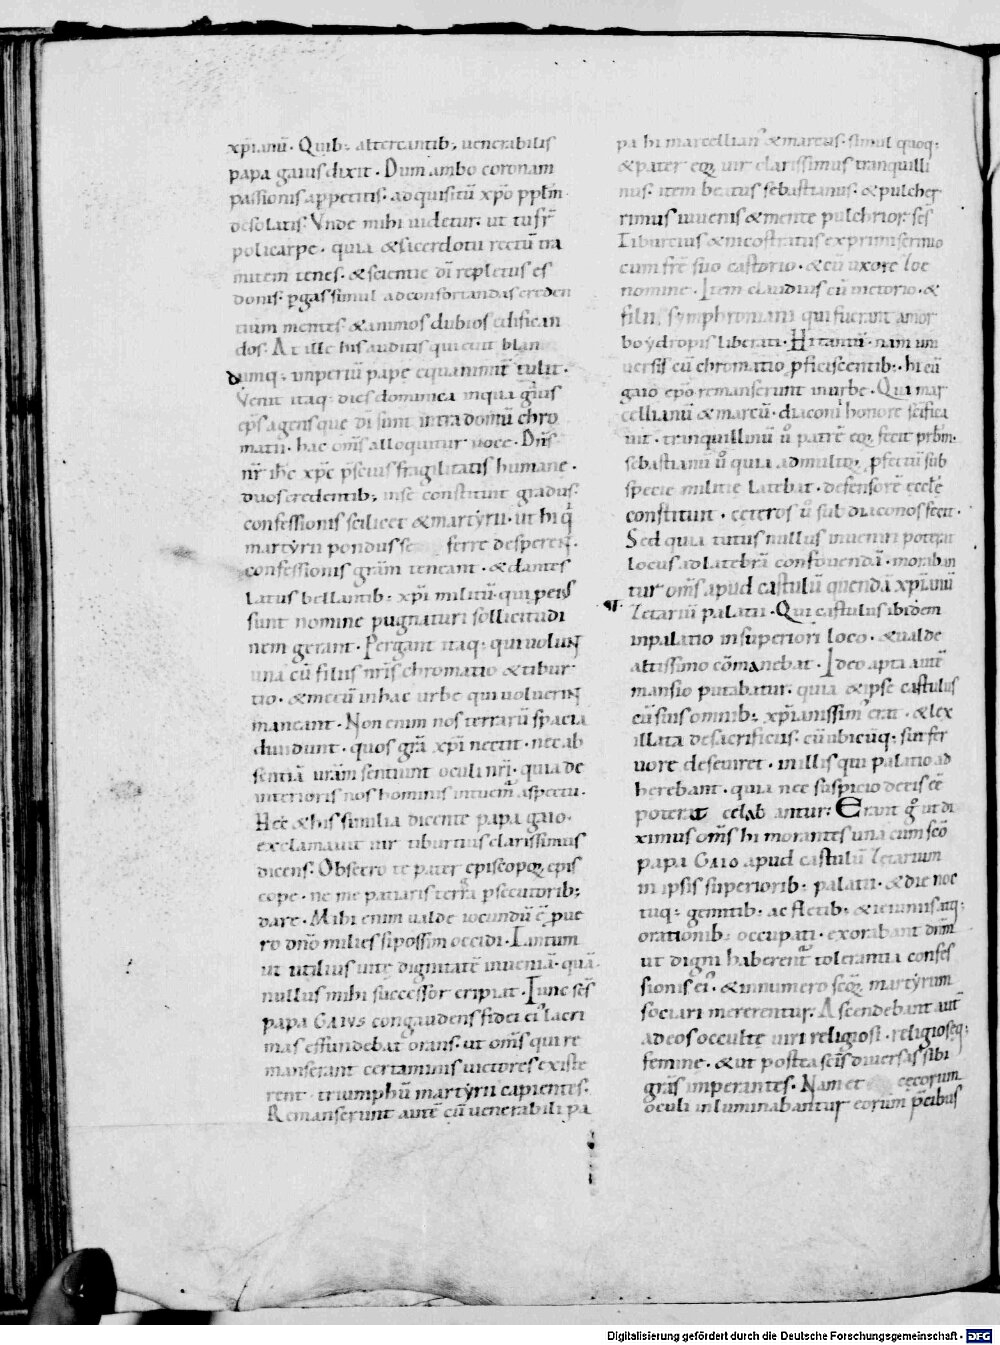 xp̄ianū. Quib; altercantib; uenerabilis
papa gaius dixit. Dum ambo coronam
passionis appetitis. adquisitū xp̄o pplm̄
desolatis. Vnde mihi uidetur. ut tu fr̄
policarpe. quia & sacerdotii rectū tra
mitem tenes. & scientie dī repletus es
donis. pgas simul ad confortandas creden
tium mentes. & animos dubios edifican
dos. At ille his auditis quieuit blan
dumq; imperiū pape equanimit̄ tulit.
Venit itaq; dies dominica in qua gaius
ep̄s agens que dī sunt intra domū chro
matii. hac om̄s alloquitur uoce. Dn̄s
nr̄ ih̄c xp̄c p̄scius fragilitatis humane.
duos credentib; in se constituit gradus.
confessionis scilicet & martyrii. ut hi q̄
martyrii pondus se ferre desperent.
confessionis grām teneant. & dantes
latus bellantib; xp̄i militū. qui p eius
sunt nomine pugnaturi sollicitudi
nem gerant. Pergant itaq; qui uolunt
una cū filiis nr̄is chromatio & tibur
tio. & mecū in hac urbe qui uoluerint
maneant. Non enim nos terrarū spacia
diuidunt. quos grā xp̄i nectit. nec ab
sentiā urām sentiunt oculi nrī. quia de
interioris nos hominis intuemur aspectu.
Hec & his similia dicente papa gaio.
exclamauit uir tiburtius clarissimus
dicens. Obsecro te pater episcoporum epis
cope. ne me patiaris terga psecutorib;
dare. Mihi enim ualde iocundū ē pue
ro dn̄o milies si possim occidi. Tantum
ut utilius uite dignitatē inueniā. quā
nullus mihi successor eripiat. Tunc sc̄s
papa GAIVS congaudens fidei ei' lacri
mas effundebat orans. ut om̄s qui re
manserant certaminis uictores existe
rent. triumphū martyrii capientes.
Remanserunt autē cū uenerabili pa
pa hi marcellian' & marcus. simul quoq;
& pater eoꝝ uir clarissimus tranquilli
nus. item beatus sebastianus. & pulcher
rimus iuuenis & mente pulchrior sc̄s
Tiburcius & nicostratus ex primiscrinio
cum frē suo castorio. & cū uxore zoe
nomine. Item claudius cū uictorio. &
filii symphroniani qui fuerant a mor
bo ydropis liberati. Hi tantū. nam uni
uersis cū chromatio pficiscentib; hi cū
gaio ep̄o remanserunt in urbe. Qui mar
cellianū & marcū. diaconi honore sc̄ifica
uit. tranquillinū ů patrē eoꝝ fecit prb̄m.
sebastianū ů quia ad multoꝝ pfectū sub
specie militie latebat. defensorē eccl̄e
constituit. ceteros ů subdiaconos fecit.
Sed quia tutus nullus inueniri poterat
locus ad latebrā confouendā. moraban
tur om̄s apud castulū quendā xp̄ianū
Zetariū palatii. Qui castulus ibidem
in palatio in superiori loco. & ualde
altissimo cōmanebat. Ideo apta autē
mansio putabatur. quia & ipse castulus
cū suis omnib; xp̄ianissim' erat. & lex
illata de sacrificiis. cū ubicūq; sui fer
uore deseuiret. in illis qui palatio ad
herebant. quia nec suspicio de eis eē
poterat celabantur. Erant ḡ ut di
ximus om̄s hi morantes una cum sc̄o
papa GAIO apud castulū Zetarium
in ipsis superiorib; palatii. & die noc
tuq; gemitib; ac fletib; & ieiuniis atq;
orationib; occupati. exorabant dn̄m
ut digni haberent̄ tolerantia confes
sionis ei'. & in numero sc̄oꝝ martyrum
sociari mererentur. Ascendebant aut̄
ad eos occulte uiri religiosi. religioseq;
femine. & ut postea sc̄is diuersas sibi
grās imperantes. Nam et cecorum
oculi inluminabantur eorum p̄cibus
Digitalisierung gefördert durch die Deutsche Forschungsgemeinschaft - DFG